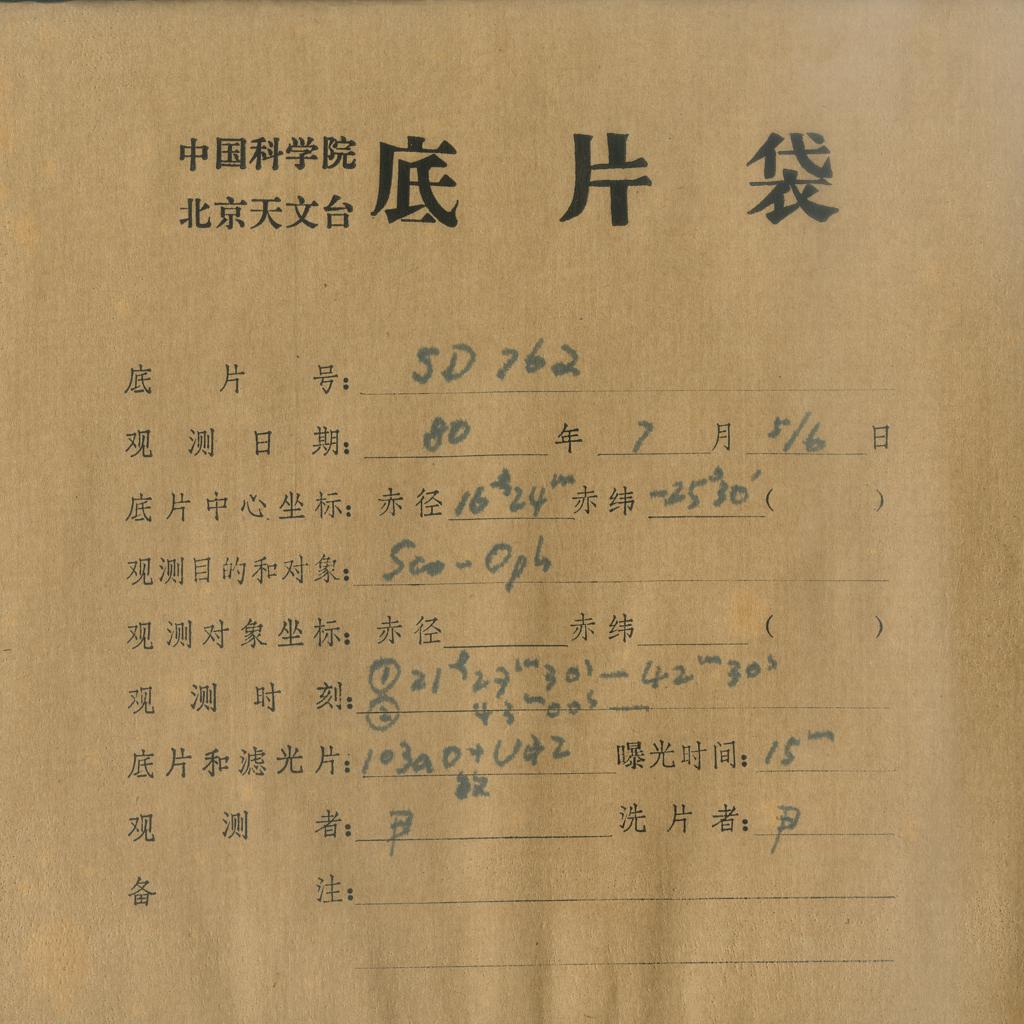 中国科学院
北京天文台
底片袋
底片号: SD 762
观测日期: 80 年 7 月 5/6 日
底片中心坐标: 赤径 16ʰ24ᵐ 赤纬 -25°30′ ( )
观测目的和对象: Sco - Oph
观测对象坐标: 赤径 赤纬 ( )
观测时刻: ① 21ʰ27ᵐ30ˢ — 42ᵐ30ˢ
② 43ᵐ00ˢ —
底片和滤光片: 103aO + UG2 曝光时间: 15ᵐ
敏
观测者: 尹 洗片者: 尹
备注: